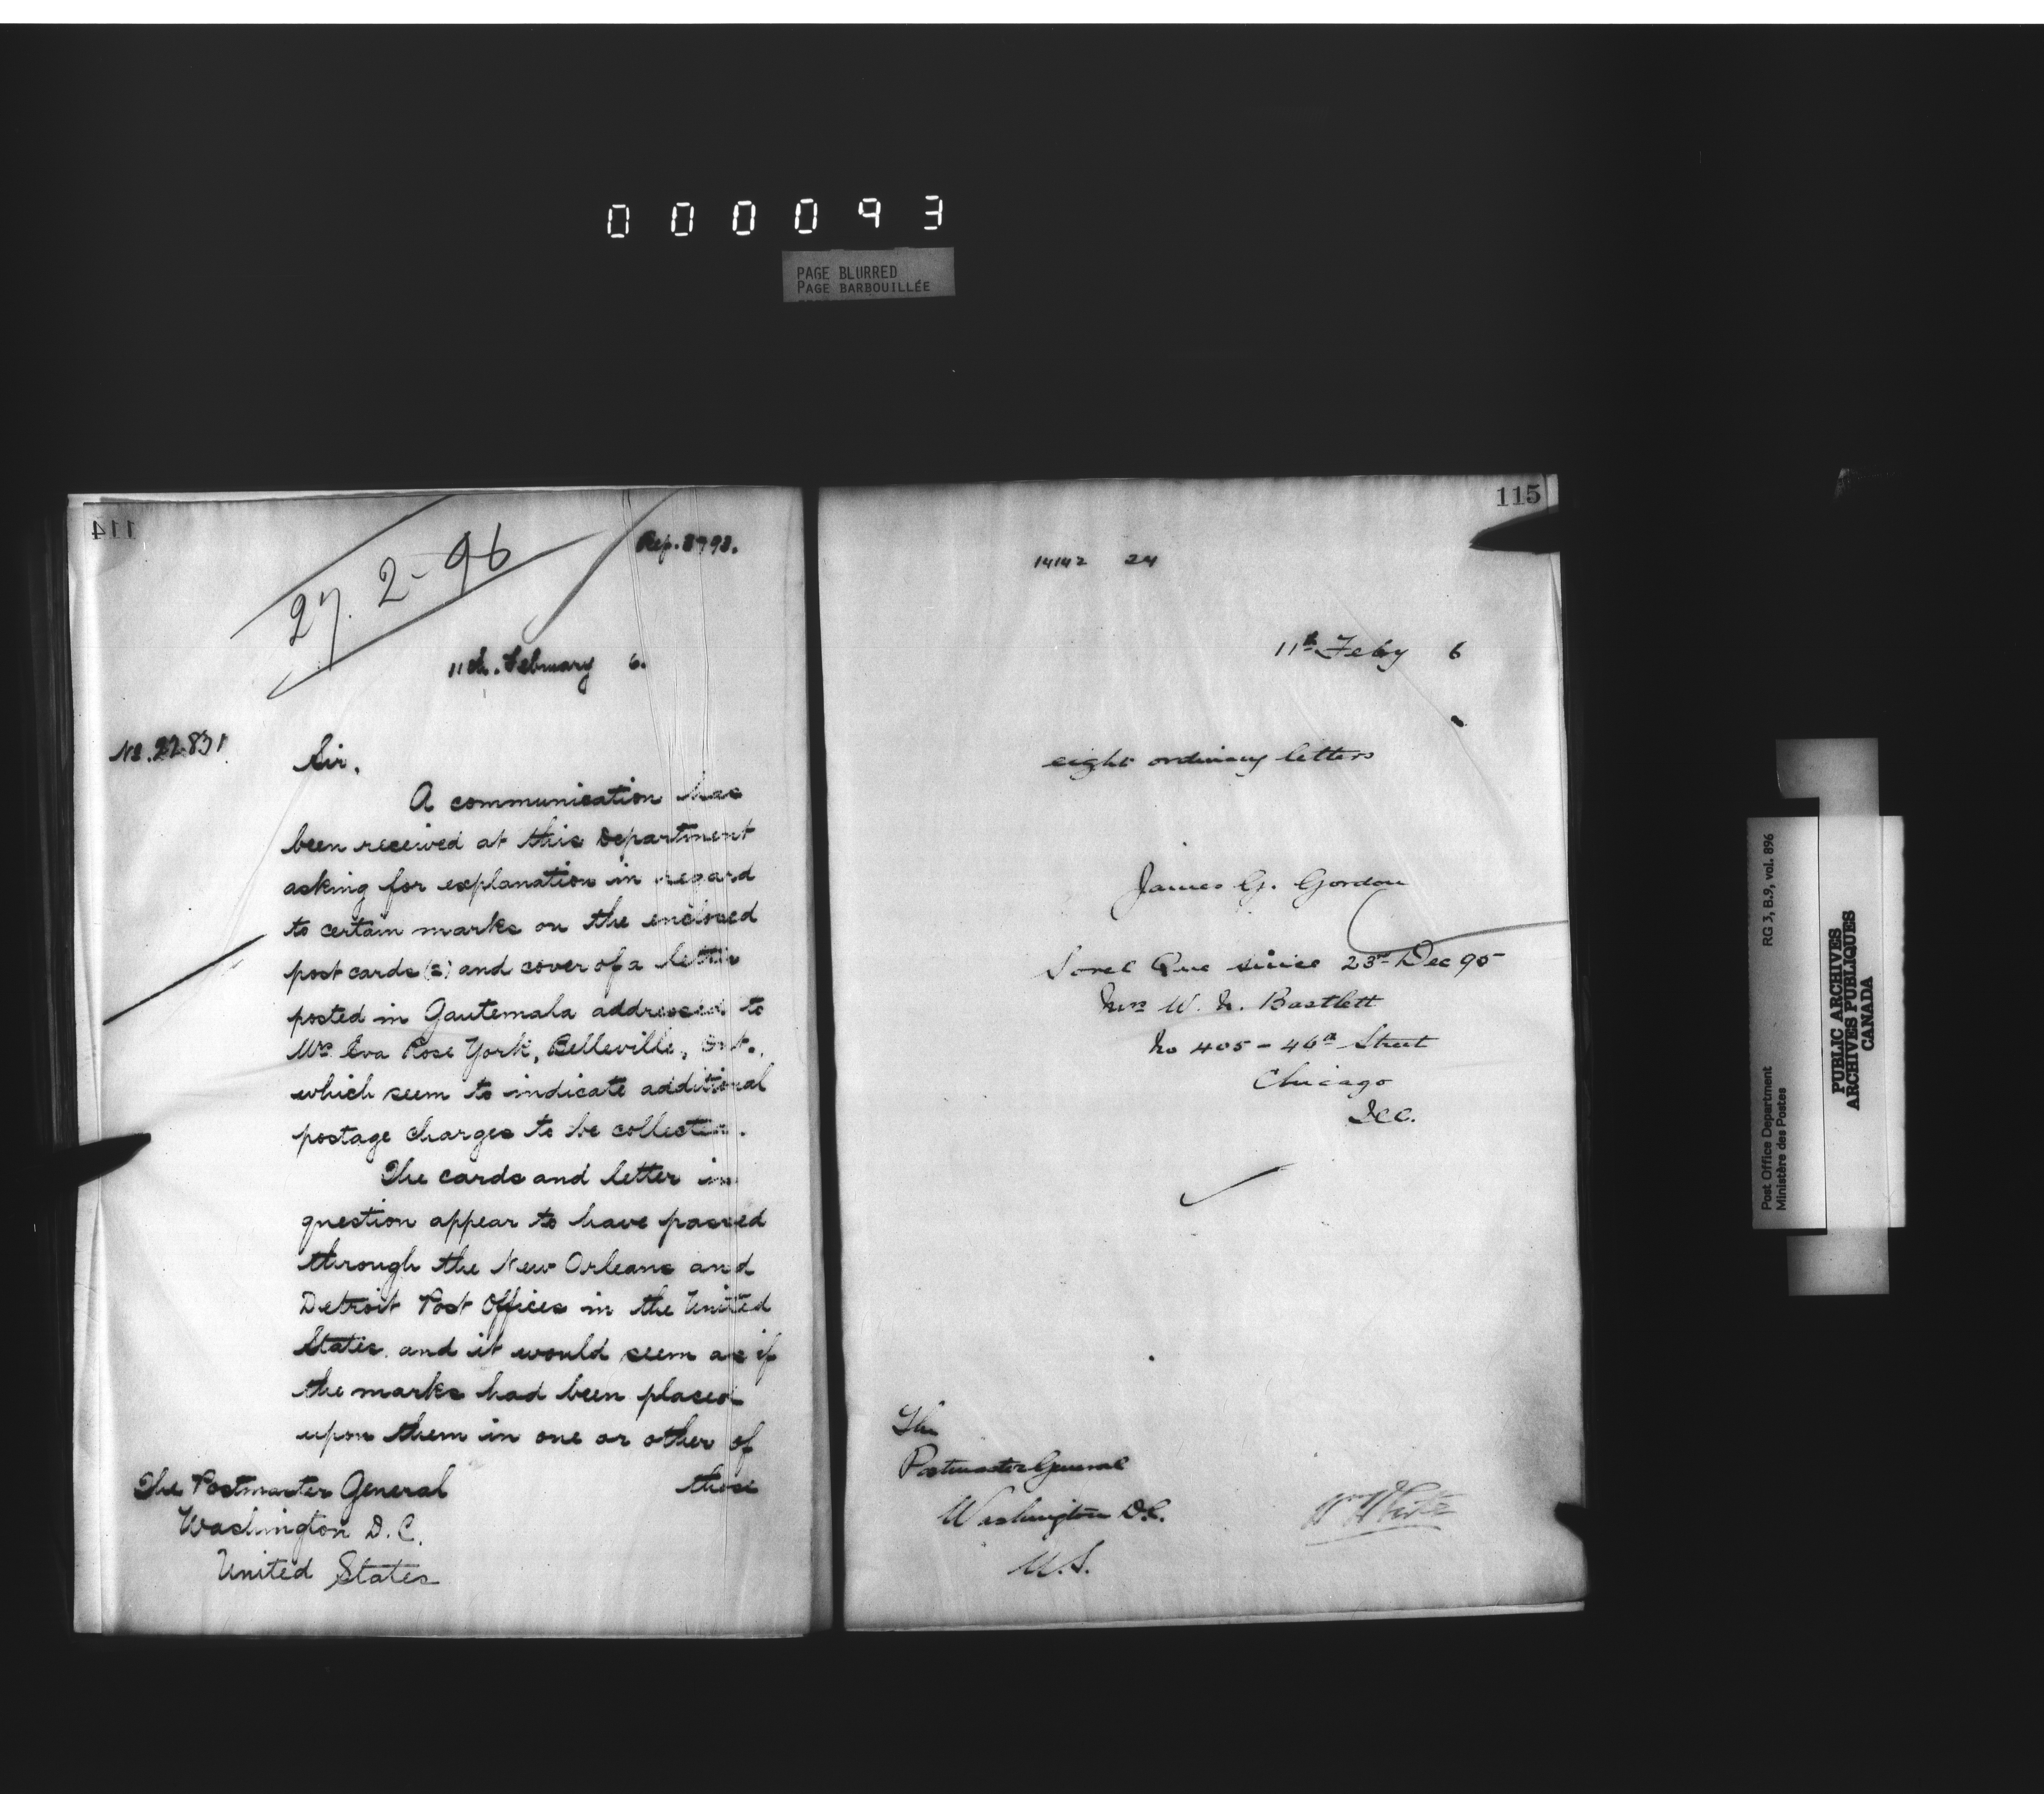 000093
PAGE BLURRED
PAGE BARBOUILLÉE
114
27. 2-96
Rep. 8798.
11th. February 6.
No. 22.831
Sir,
A communication has
been received at this Department
asking for explanation in regard
to certain marks on the enclosed
post cards (2) and cover of a letter
posted in Gautemala addressed to
Mrs. Eva Rose York, Belleville, Ont.,
which seem to indicate additional
postage charges to be collected.
The cards and letter in
question appear to have passed
through the New Orleans and
Detroit Post Offices in the United
States. and it would seem as if
the marks had been placed
upon them in one or other of
those
The Postmaster General
Washington D. C.
United States
115
14142 24
11th Feby 6
eight ordinary letters
James G. Gordon
Sorel Que since 23rd Dec 95
Mrs W. N. Bartlett
No 405 - 46th Street
Chicago
Ill.
The
Postmaster General
Washington D.C.
U.S.
Wm White
Post Office Department
Ministère des Postes
RG 3, B.9, vol. 896
PUBLIC ARCHIVES
ARCHIVES PUBLIQUES
CANADA